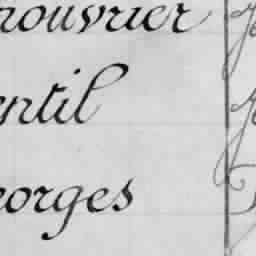 nouvrier
entil
eorges